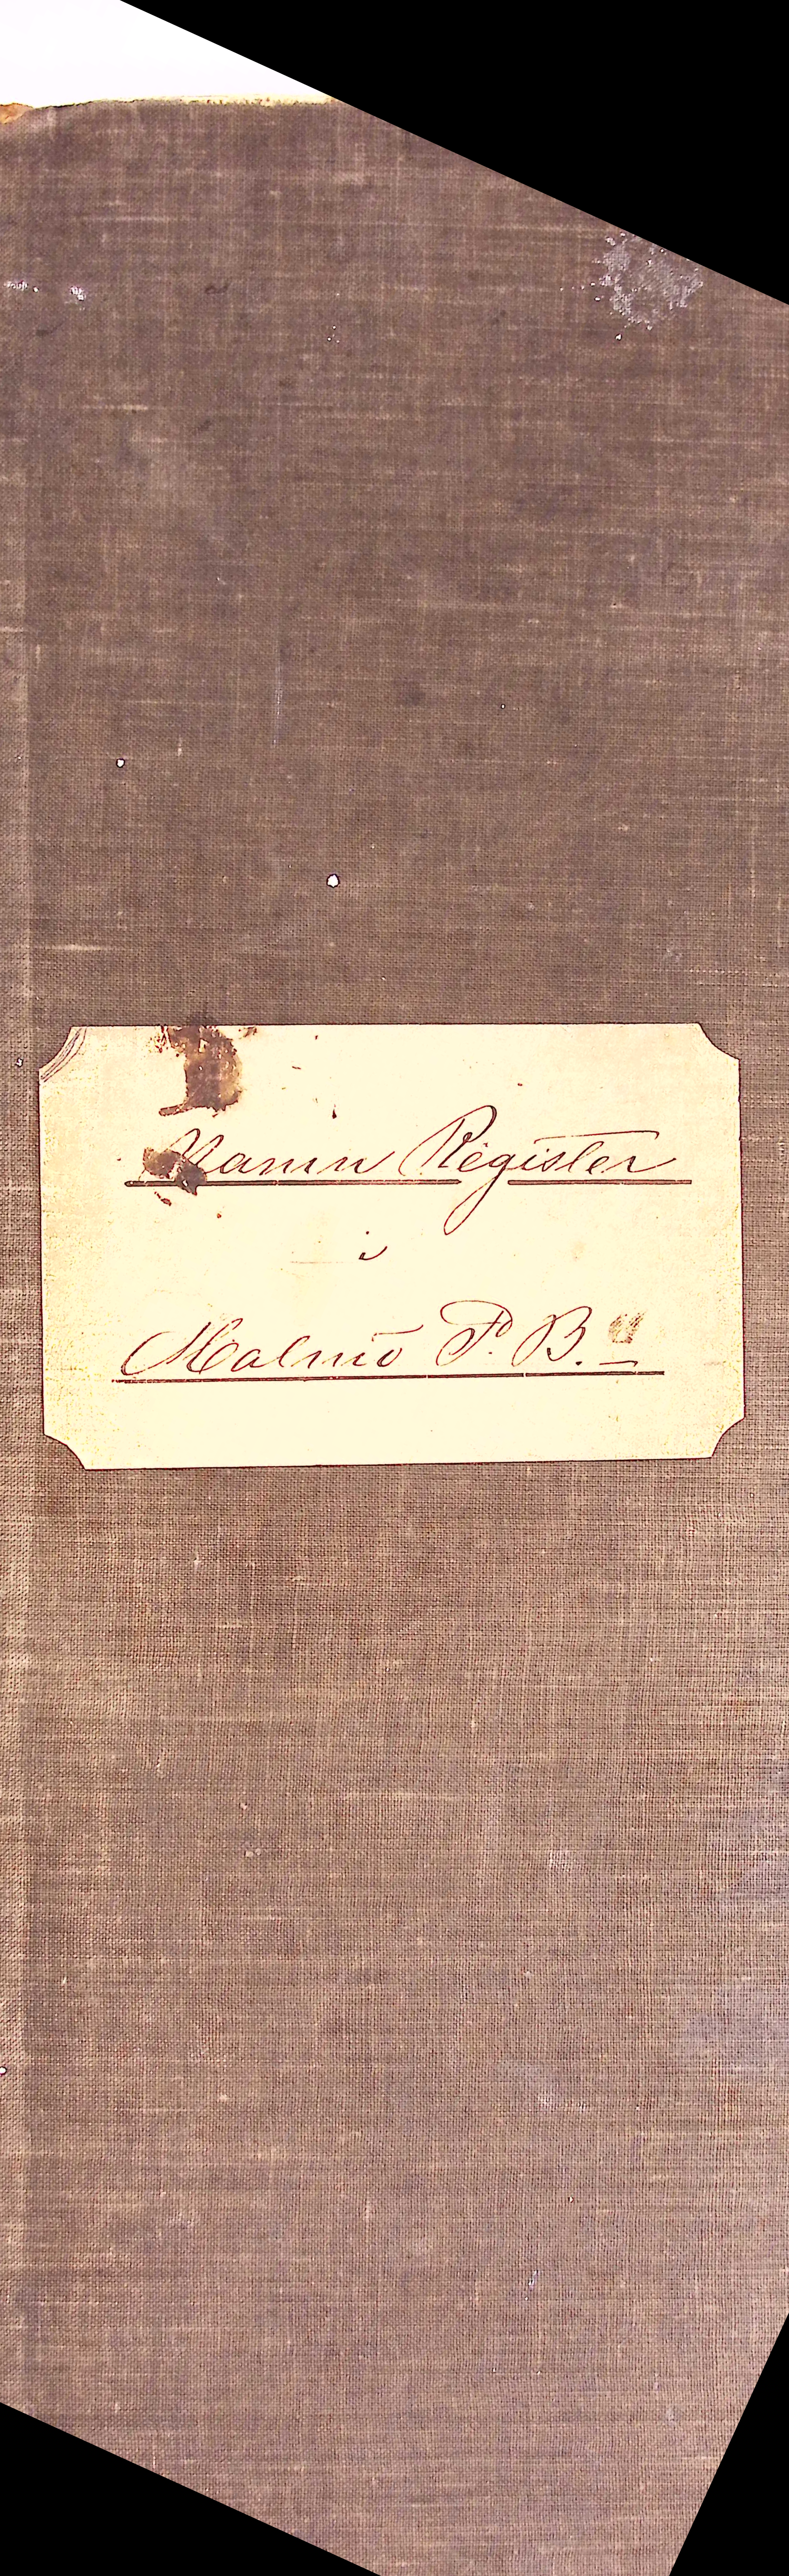 Namn Register
i
Malmö P. B.